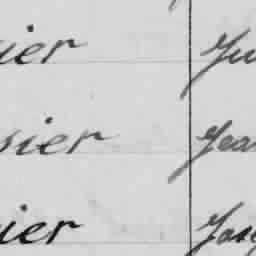 ier Ju
sier Jea
ier Jos